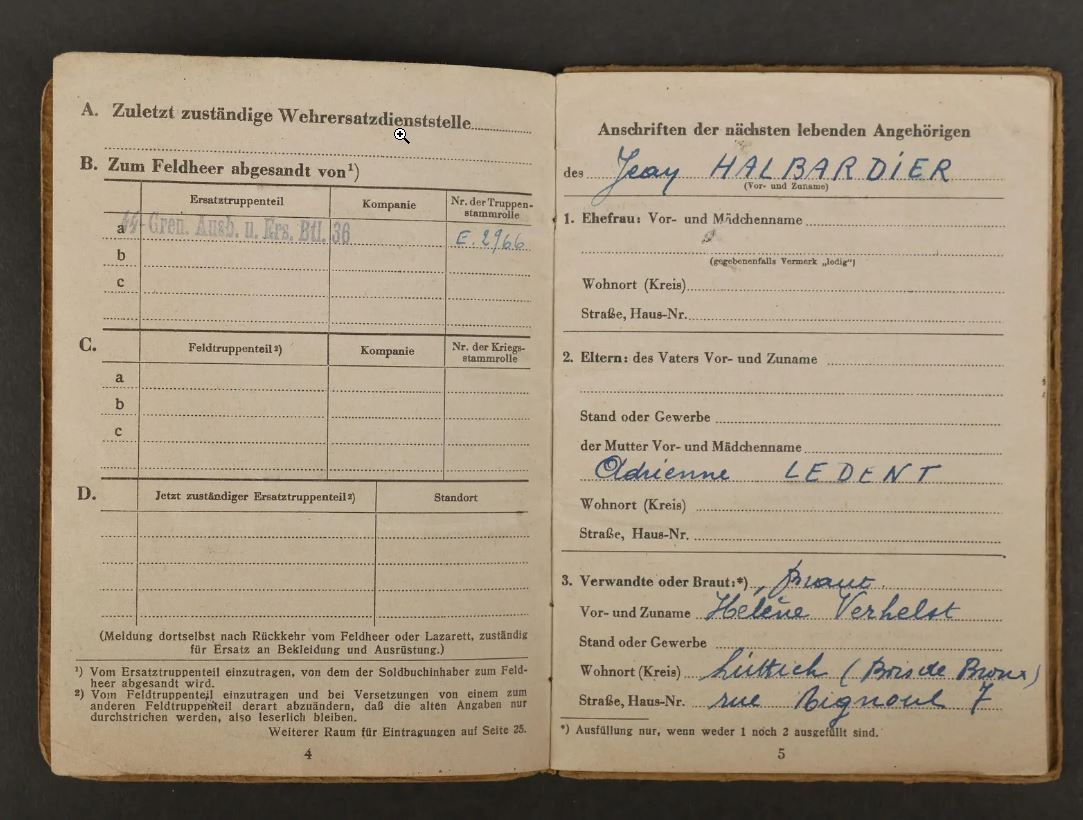 A. Zuletzt zuständige Wehrersatzdienststelle
B. Zum Feldheer abgesandt von¹)
Ersatztruppenteil Kompanie Nr. der Truppen-
stammrolle
a ᛋᛋ-Gren. Ausb. u. Ers. Btl. 36 E. 2966
b
c
C. Feldtruppenteil²) Kompanie Nr. der Kriegs-
stammrolle
a
b
c
D. Jetzt zuständiger Ersatztruppenteil²) Standort
(Meldung dortselbst nach Rückkehr vom Feldheer oder Lazarett, zuständig
für Ersatz an Bekleidung und Ausrüstung.)
¹) Vom Ersatztruppenteil einzutragen, von dem der Soldbuchinhaber zum Feld-
heer abgesandt wird.
²) Vom Feldtruppenteil einzutragen und bei Versetzungen von einem zum
anderen Feldtruppenteil derart abzuändern, daß die alten Angaben nur
durchstrichen werden, also leserlich bleiben.
Weiterer Raum für Eintragungen auf Seite 25.
4
Anschriften der nächsten lebenden Angehörigen
des Jean HALBARDIER
(Vor- und Zuname)
1. Ehefrau: Vor- und Mädchenname
(gegebenenfalls Vermerk „ledig")
Wohnort (Kreis)
Straße, Haus-Nr.
2. Eltern: des Vaters Vor- und Zuname
Stand oder Gewerbe
der Mutter Vor- und Mädchenname
Adrienne LEDENT
Wohnort (Kreis)
Straße, Haus-Nr.
3. Verwandte oder Braut:*) Braut
Vor- und Zuname Helène Verhelst
Stand oder Gewerbe
Wohnort (Kreis) Lüttich (Bois de
Straße, Haus-Nr. rue 7
*) Ausfüllung nur, wenn weder 1 noch 2 ausgefüllt sind.
5